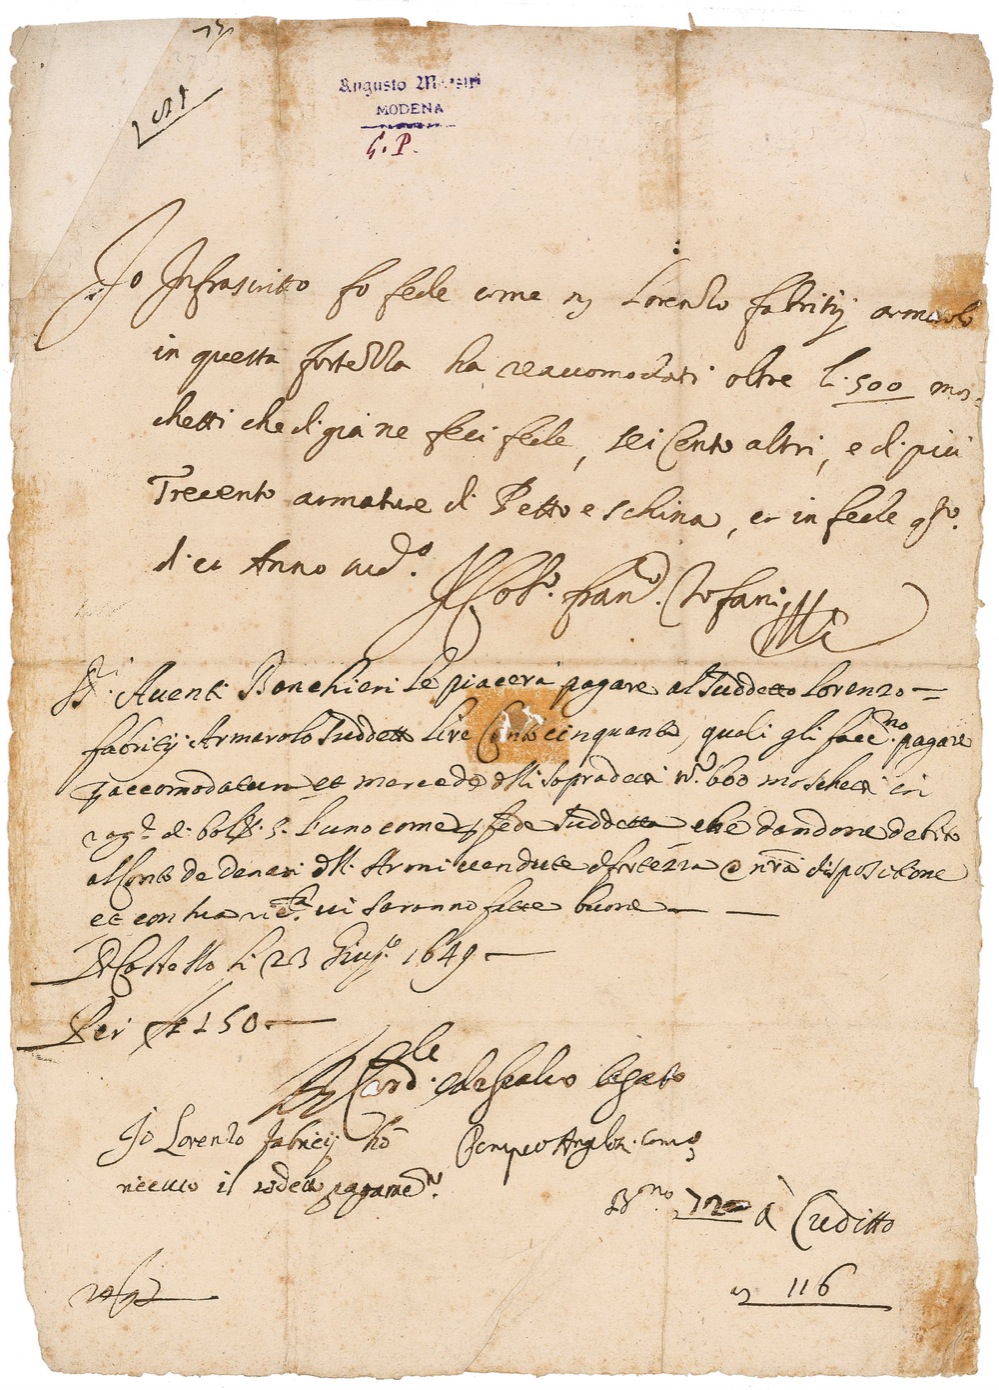 Augusto
MODENA
G. P.
Io Infrascritto fo fede come Lorenzo fabritij armarolo
in questa fortezza ha reaccomodati oltre l: 500 mos-
chetti che di già ne feci fede, sei Cento altri, e di più
Trecento armature di Petto e schina, et in fede
di et Anno
fran.co Tofani
Aventi Banchieri le piacerà pagare al suddetto Lorenzo
fabritij Armarolo suddetto lire Cento cinquanta, quali gli facc.no pagare
accomodatura et mercede delli sopradetti n.o 600 moschetti in
rag.e di bol: 5. l'uno come fede suddetta che dandone debito
al Conto de denari dell' Armi vendute fortezza nra dispositione
et con sua vi saranno fatte buone
Di Castello li 23 Giug.o 1649
Per 150
Card.le Legato
Io Lorenzo fabricij hò
riceuto il sodetto pagame.to
Pompeo
72 à Creditto
116